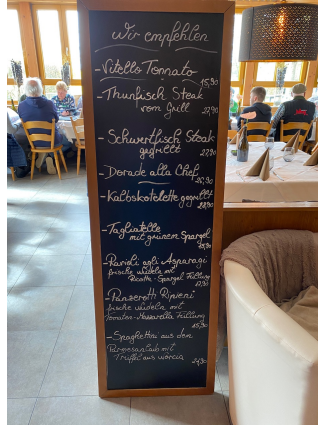 Wir empfehlen
- Vitello Tonnato
15,50
- Thunfisch Steak
vom Grill
22,90
- Schwertfisch Steak
gegrillt
22,90
- Dorade alla Chef
26,90
- Kalbskotelette gegrillt
28,90
- Tagliatelle
mit grünem Spargel
- Ravioli agli Asparagi
frische Nudeln mit
Ricotta-Spargel Füllung
17,90
- Panzerotti Ripieni
frische Nudeln mit
Tomaten-Mozzarella Füllung
15,90
- Spaghettini aus dem
Parmesanlaib mit
Trüffel aus norcia
24,90